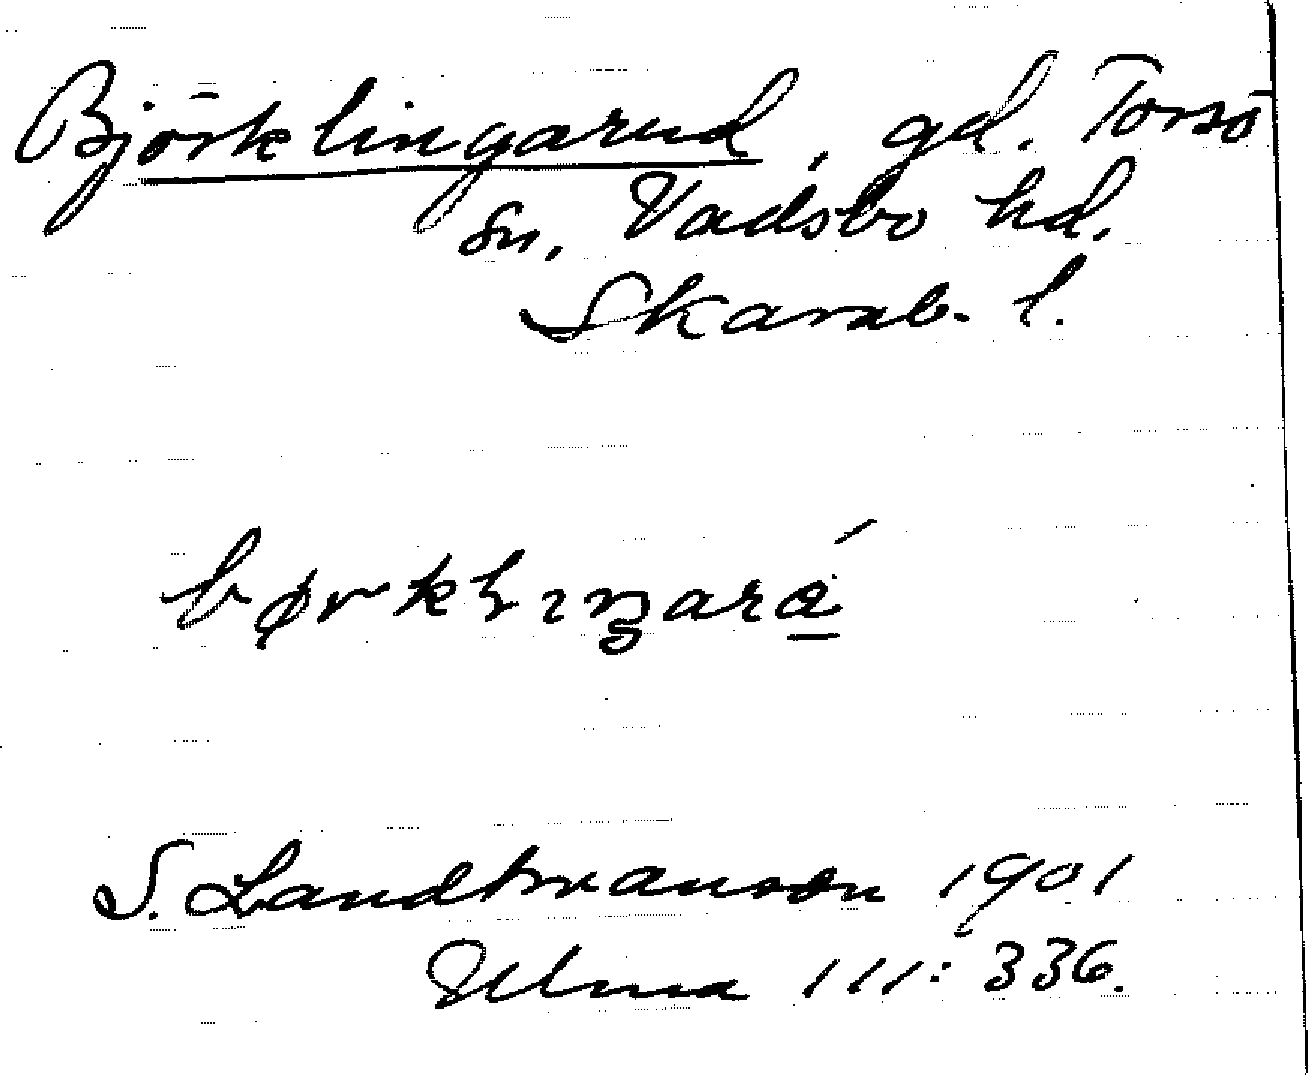 Björklingarud, gd. Torsö
sn. Vadsbo hd.
Skarab. l.
S. Landtmanson 1901
Ulma 111: 336.